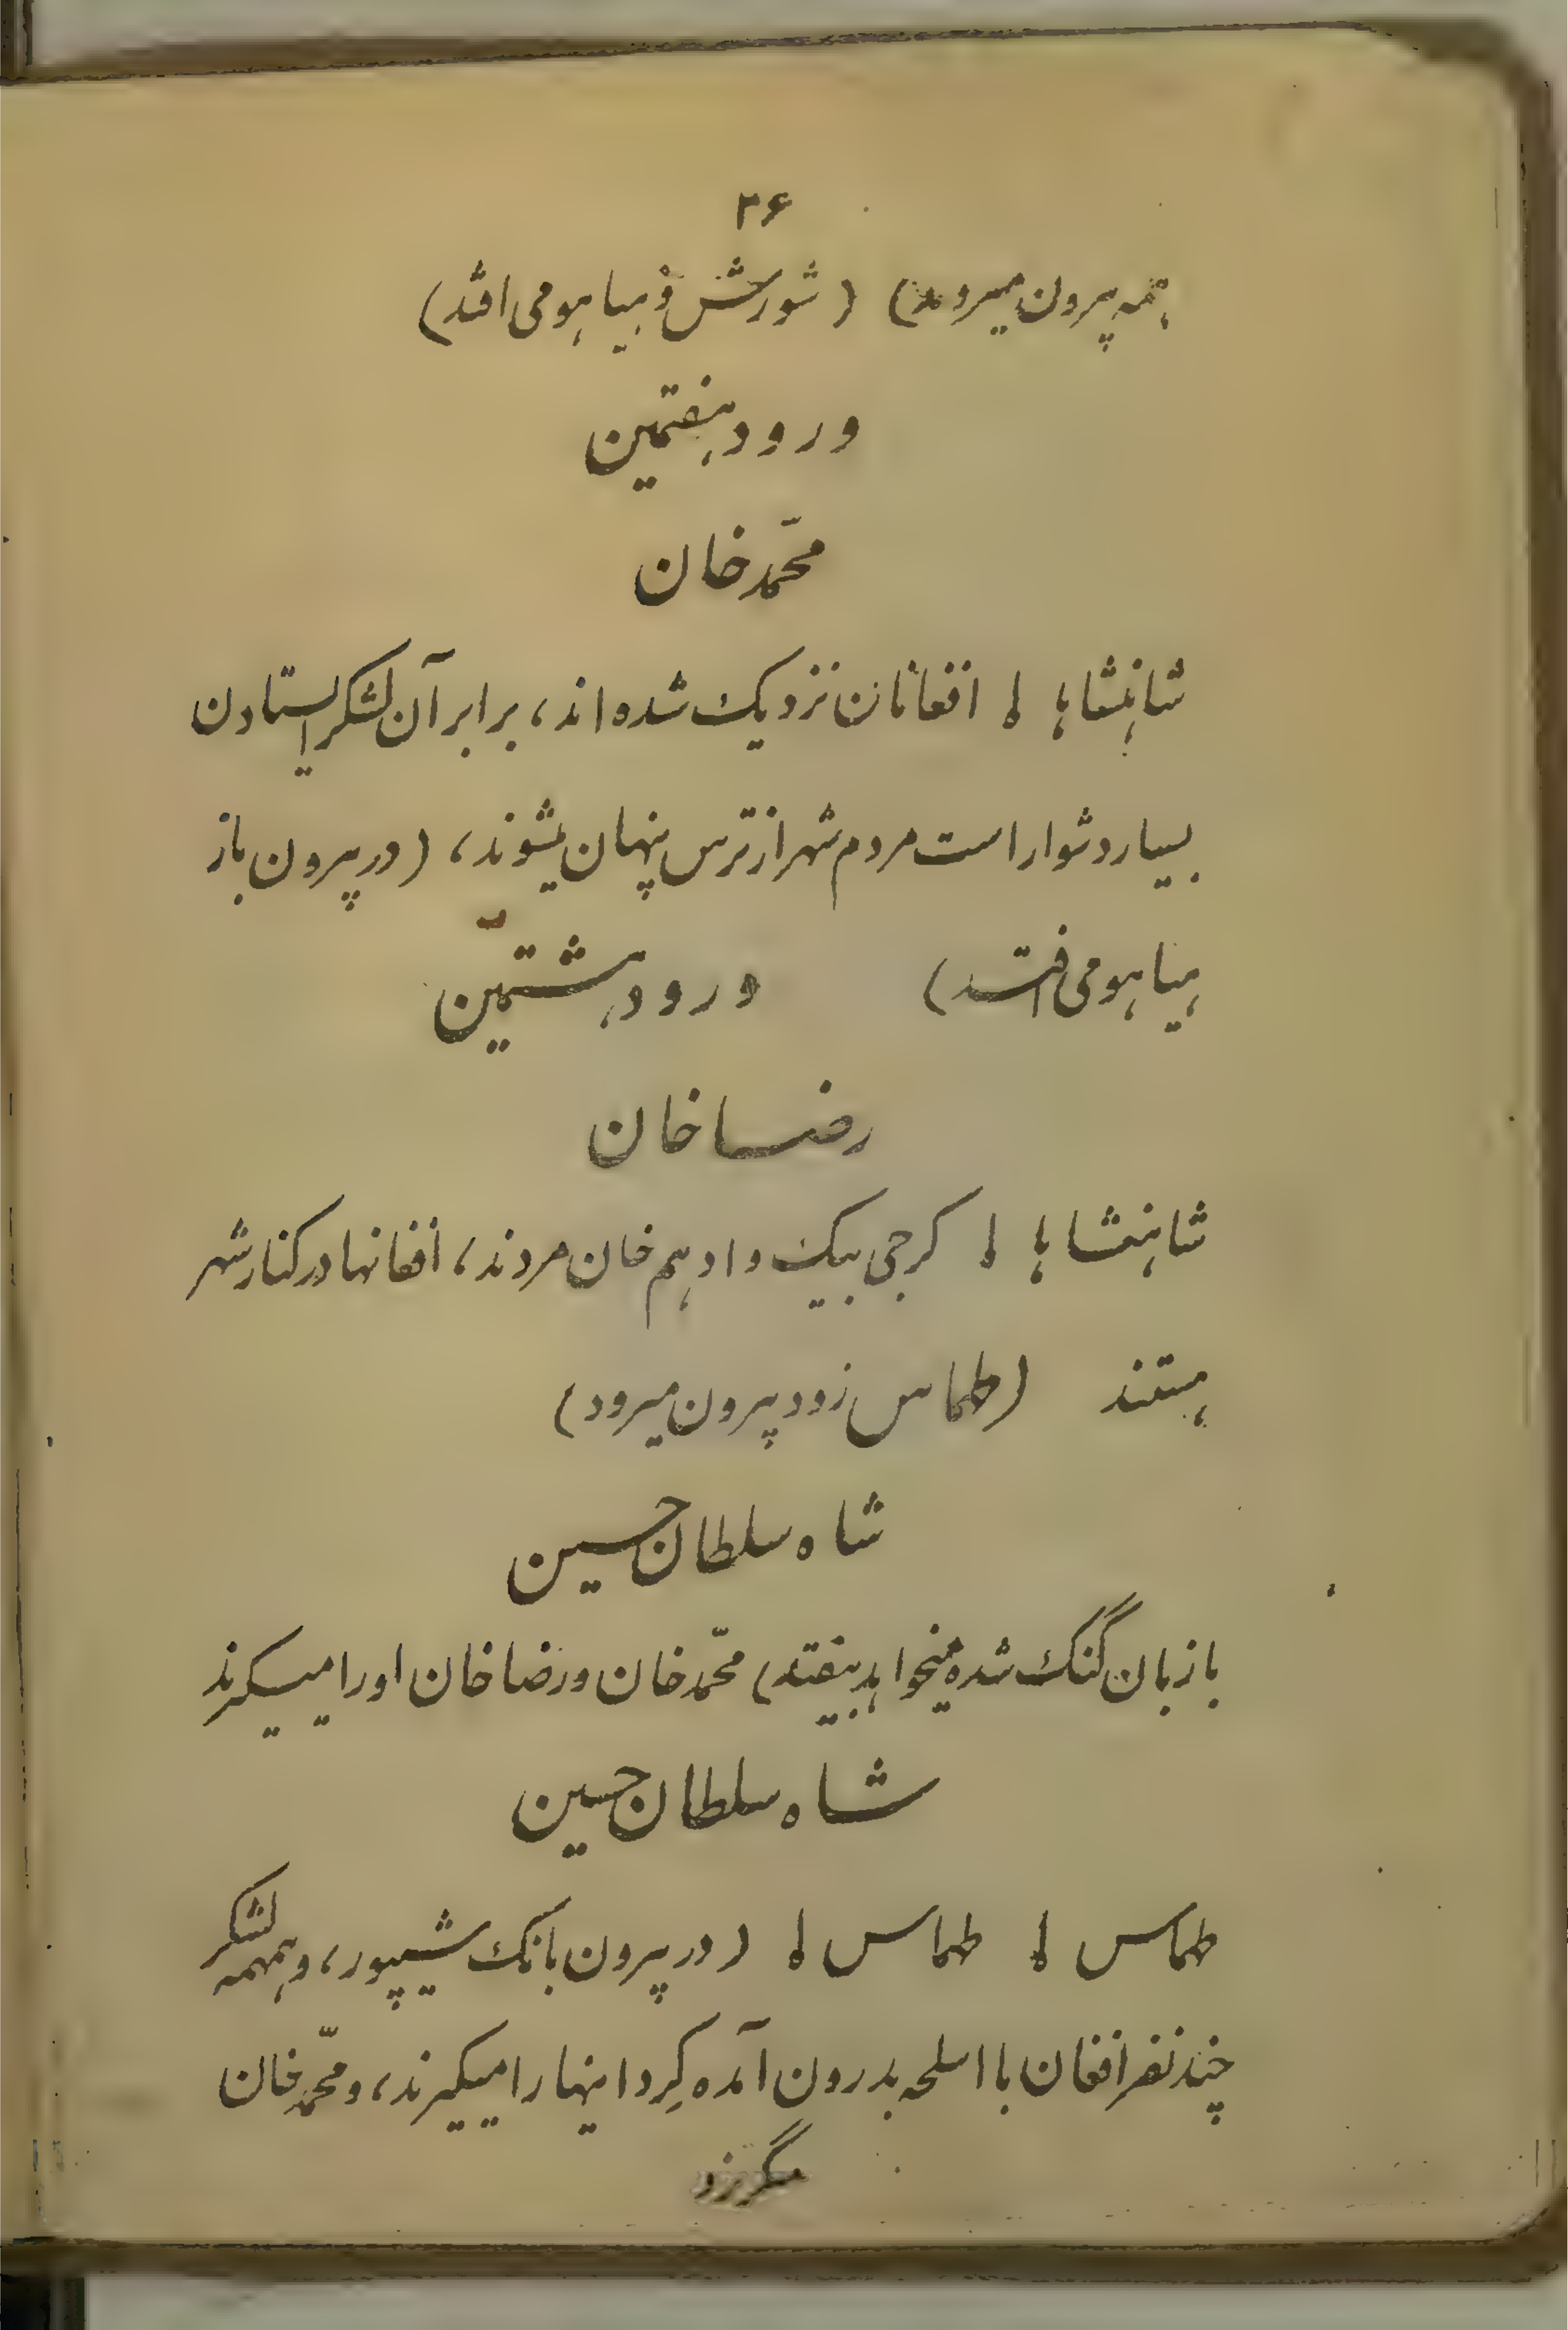 ۲۶
همه بیرون میروند) (شورش و هیاهو می افتد)
ورود هفتمین
محمّد خان
شاهنشاها ! افغانان نزدیک شده اند، برابر آن لشکر ایستادن
بسیار دشوار است مردم شهر از ترس پنهان میشوند، (در بیرون باز
هیاهو می افتد) ورود هشتمین
رضا خان
شاهنشاها ! کرجی بیک و ادهم خان مردند، افغانها در کنار شهر
هستند (طهماس زود بیرون میرود)
شاه سلطان حسین
با زبان گنگ شده میخواهد بیفتد) محمّد خان و رضا خان او را میگیرند
شاه سلطان حسین
طهماس ! طهماس ! (در بیرون بانک شیپور، و همهمه لشکر
چند نفر افغان با اسلحه بدرون آمده گِرد اینها را میگیرند، و محمّد خان
میگریزد